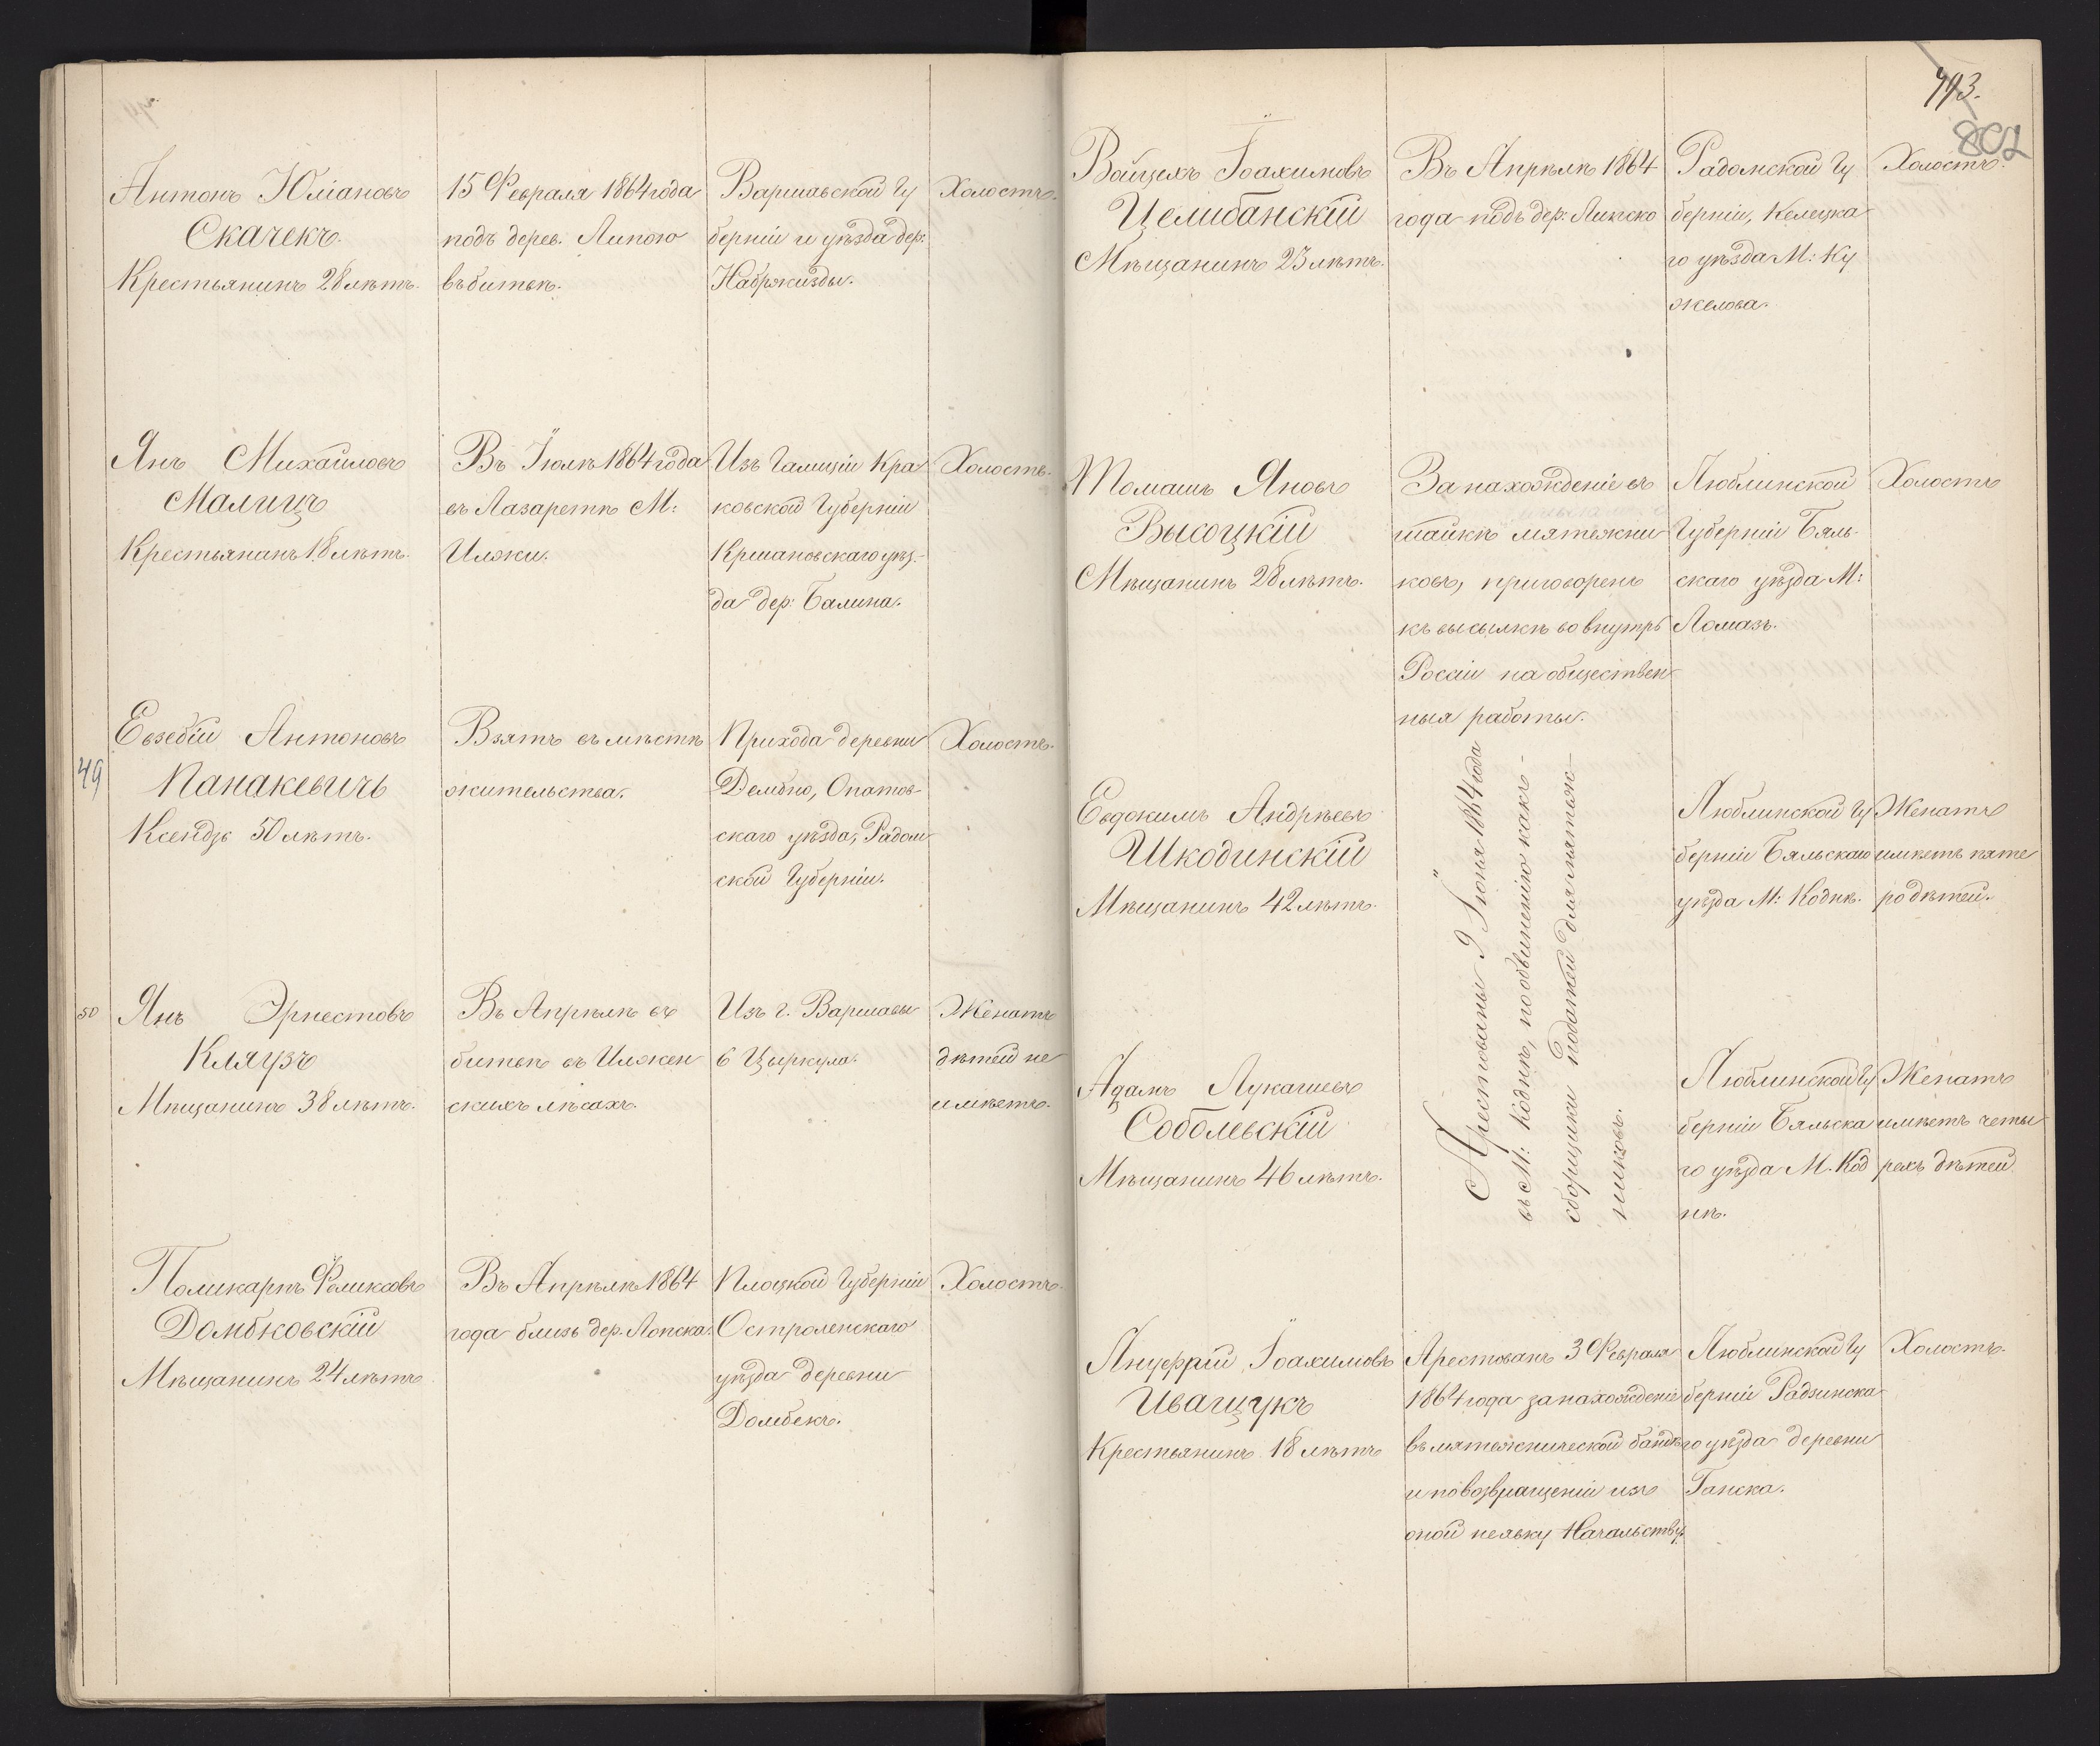 Антонъ Юліановъ
Скачекъ.
Крестьянинъ 28 лѣтъ.
15 Февраля 1864 года
подъ дерев. Липою
въ битвѣ.
Варшавской Гу
берніи и уѣзда дер:
Набржизды.
Холостъ.
Янъ Михайловъ
Малицъ
Крестьянанъ 18 лѣтъ.
Въ Іюлѣ 1864 года
въ Лазаретѣ М:
Илжи.
Изъ Галиціи Кра
ковской Губерніи
Кршановскаго уѣз-
да дер: Балина.
Холостъ.
49
Евзебій Антоновъ
Панакевичъ
Ксендзъ 50 лѣтъ.
Взятъ въ мѣстѣ
жительства.
Прихода деревни
Дембно, Опатов-
скаго уѣзда, Радом
ской Губерніи.
Холостъ.
50
Янъ Эрнестовъ
Кляузъ
Мѣщанинъ 38 лѣтъ.
Въ Апрѣлѣ въ
битвѣ въ Илжен
скихъ лѣсахъ.
Изъ г. Варшавы
6 Цыркула.
Женатъ
дѣтей не
имѣетъ.
Поликарпъ Феликсовъ
Домбковскій
Мѣщанинъ 24 лѣтъ
Въ Апрѣлѣ 1864
года близь дер. Липска.
Плоцкой Губерніи
Остроленскаго
уѣзда деревни
Домбекъ.
Холостъ.
793.
802
Войцехъ Іоахимовъ
Целибанскій
Мѣщанинъ 23 лѣтъ.
Въ Апрѣлѣ 1864
года подъ дер: Липско
Радомской Гу
берніи, Келецка
го уѣзда М: Ку
желова.
Холостъ.
Томашъ Яновъ
Высоцкій
Мѣщанинъ 28 лѣтъ.
За нахожденіе въ
шайкѣ мятежни
ковъ, приговоренъ
къ высылкѣ во внутрь
Россіи на обществен
ныя работы.
Люблинской
Губерніи Бяль-
скаго уѣзда М:
Ломазъ.
Холостъ
Евдокимъ Андрѣевъ
Шкодинскій
Мѣщанинъ 42 лѣтъ.
Арестованы 9 Іюня 1864 года
въ М: Коднѣ, по обвиненію какъ-
сборщики податей для мятеж-
никовъ.
Люблинской Гу
берніи Бяльскаго
уѣзда М: Коднѣ.
Женатъ
имѣетъ пяте
ро дѣтей.
Адамъ Лукашевъ
Соболевскій
Мѣщанинъ 46 лѣтъ.
Люблинской Гу
берніи Бяльска
го уѣзда М. Код
нѣ.
Женатъ
имѣетъ четы
рехъ дѣтей
Ануфрій Іоахимовъ
Иващукъ
Крестьянинъ 18 лѣтъ
Арестованъ 3 Февраля
1864 года за нахожденіе
въ мятежнической бандѣ
и по возвращеніи изъ
оной неявку Начальству.
Люблинской Гу
берніи Радзинска
го уѣзда деревни
Ганска.
Холостъ.